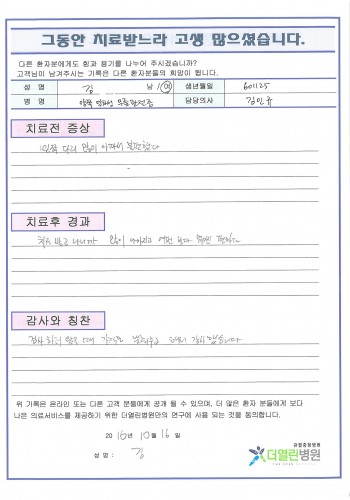 그동안 치료받느라 고생 많으셨습니다.
다른 환자분에게도 힘과 용기를 나누어 주시겠습니까?
고객님이 남겨주시는 기록은 다른 환자분들의 희망이 됩니다.
성 명 김 남 / 여 생년월일 601125
병 명 양쪽 무릎관절증 담당의사 김민규
치료전 증상
양쪽 다리 많이 아파서 불편했다
치료후 경과
치료 받고 나니까 많이 나아지고 보다 훨씬
감사와 칭찬
감사 합니다
위 기록은 온라인 또는 다른 고객 분들에게 공개 될 수 있으며, 더 많은 환자 분들에게 보다
나은 의료서비스를 제공하기 위한 더열린병원만의 연구에 사용 되는 것을 동의합니다.
2016년 10월 16일
성 명 : 김
관절중점병원
더열린병원